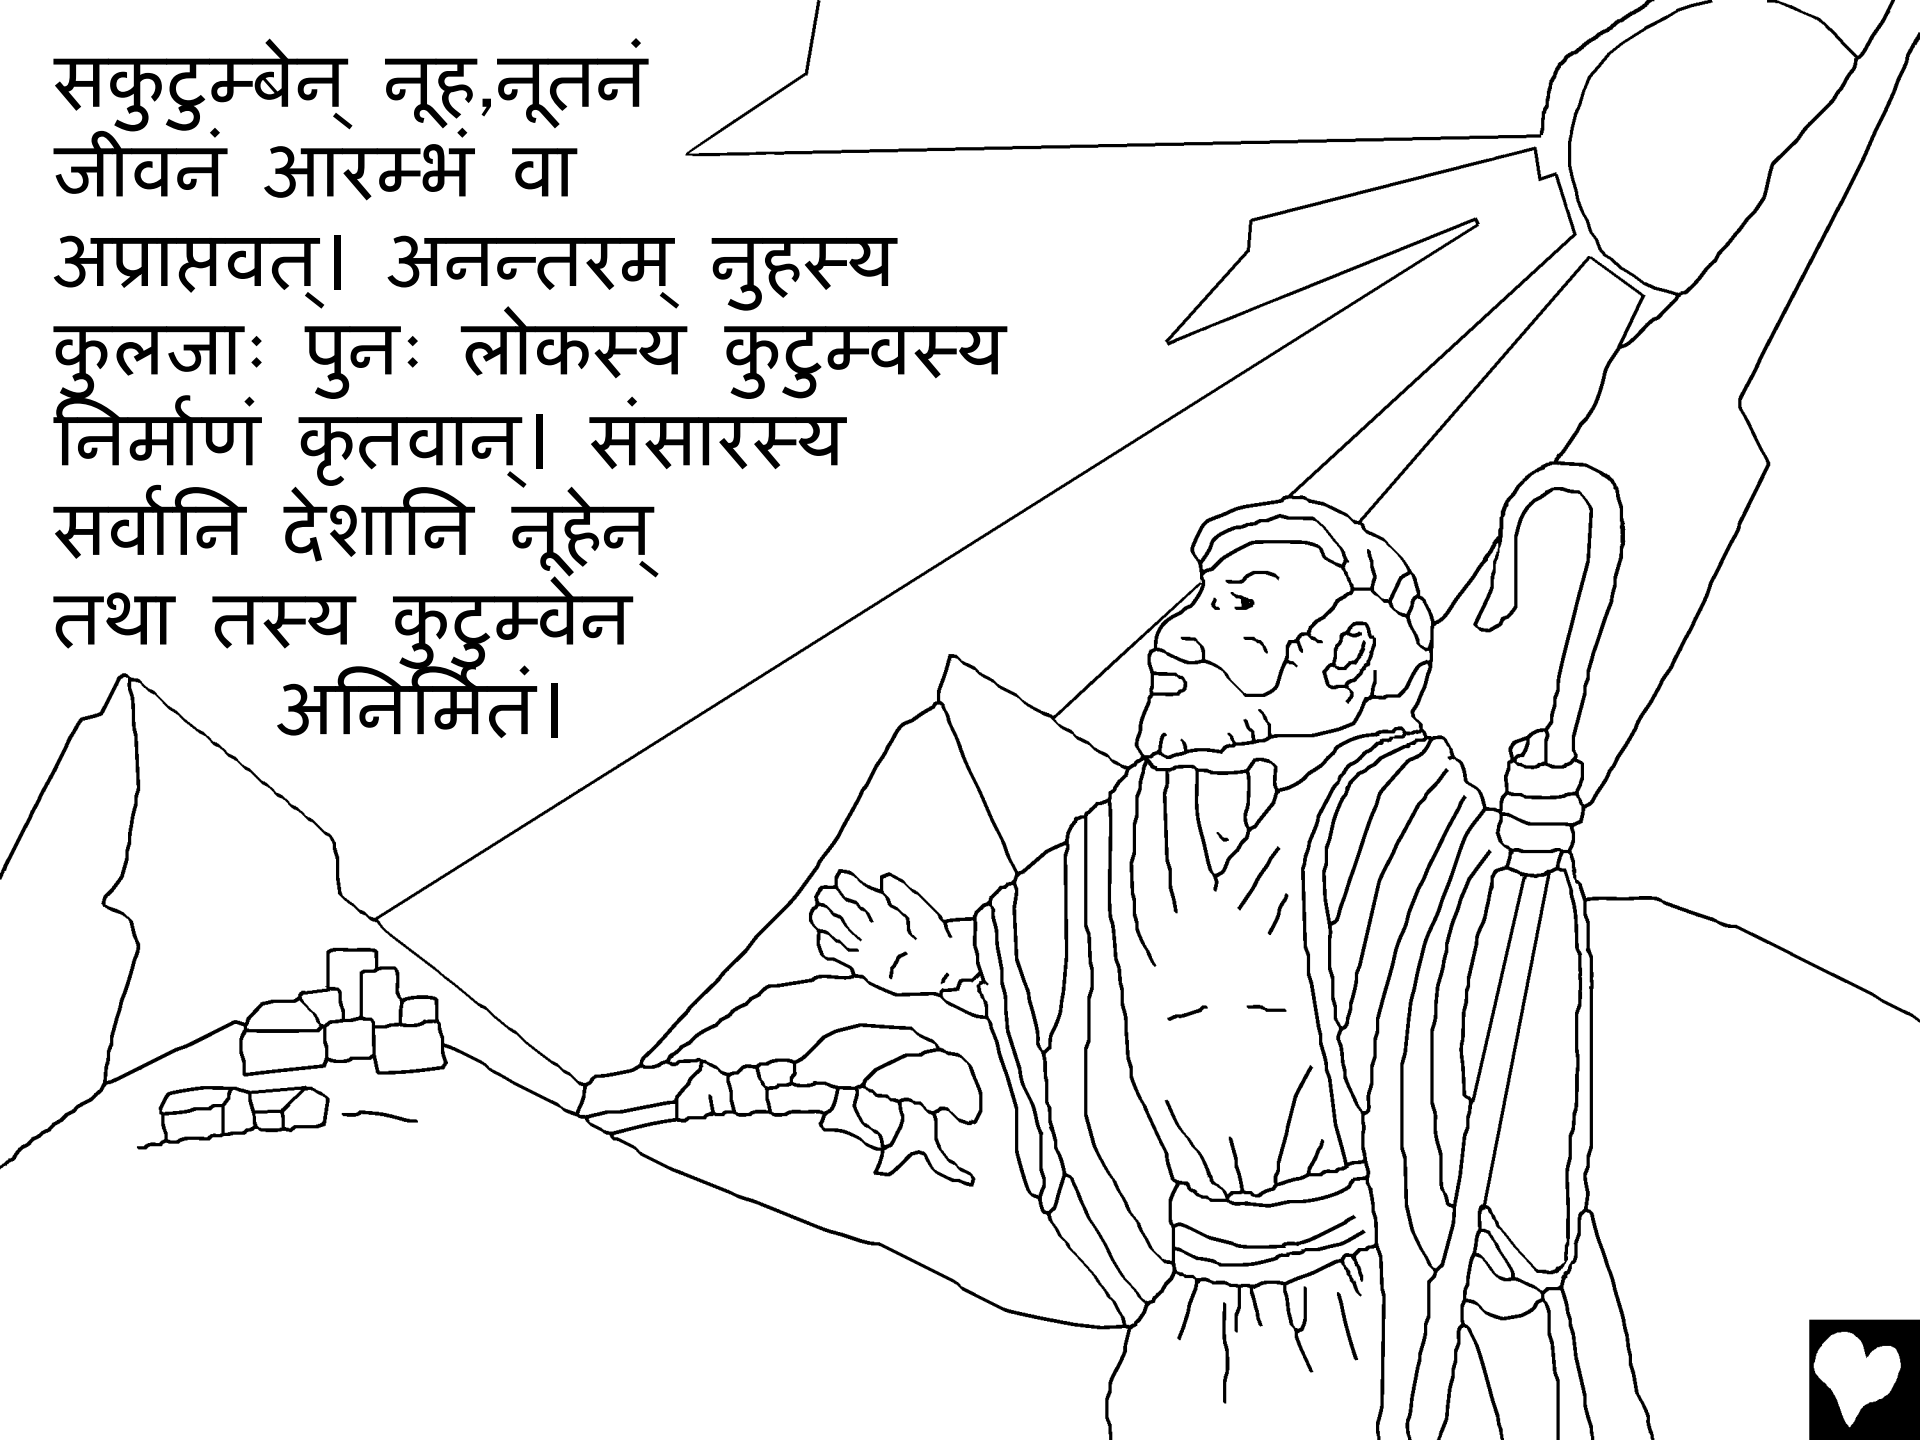 सकुटुम्बेन् नूह,नूतनं
जीवनं आरम्भं वा
अप्राप्तवत्। अनन्तरम् नुहस्य
कुलजाः पुनः लोकस्य कुटुम्वस्य
निर्माणं कृतवान्। संसारस्य
सर्वानि देशानि नूहेन्
तथा तस्य कुटुम्वेन
अनिर्मितं।